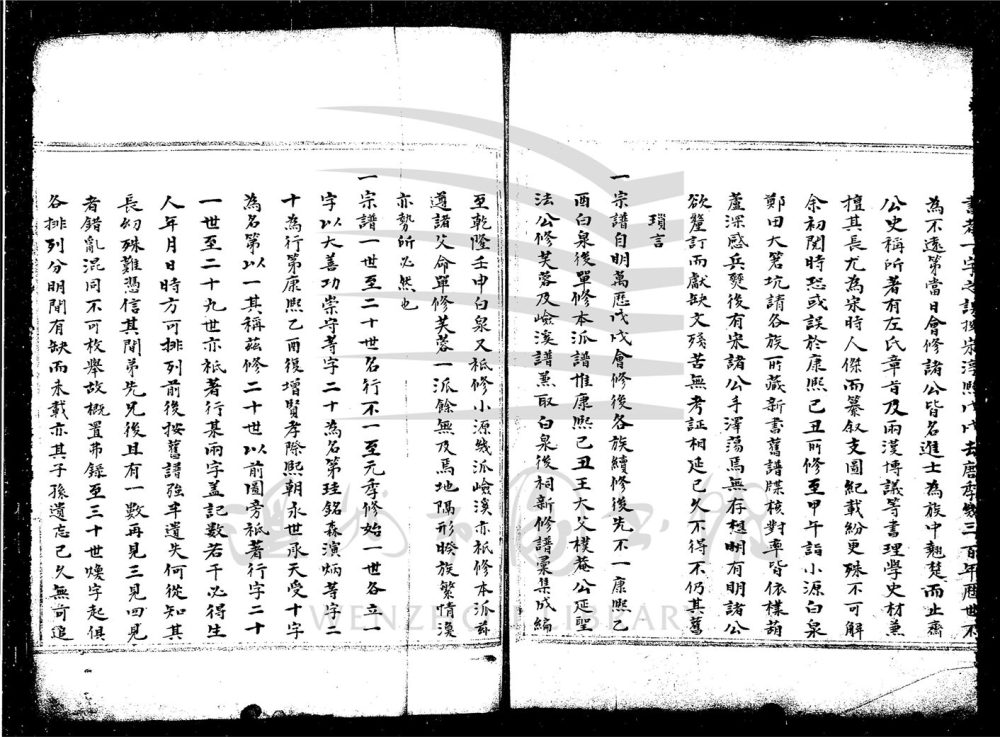 書者一字之誤按宋淳熙戊戌去唐季幾三百年歷世不
為不遠第當日會修諸公皆名進士為族中翹楚而止齋
公史稱所著有左氏章旨及兩漢博議等書理學史材兼
擅其長尤為宋時人傑而纂叙支圖紀載紛更殊不可解
余初閱時恐或誤於康熙己丑所修至甲午詣小源白泉
鄭田大箬坑諸各族所藏新書舊譜牒核對率皆依樣葫
蘆深惑兵燹後有宋諸公手澤蕩焉無存想明有明諸公
欲釐訂而獻缺文殘苦無考証相延已久不得不仍其舊
瑣言
一宗譜自明萬歷戊戌會修後各族續修後先不一康熙乙
酉白泉後單修本派譜惟康熙己丑王大父樸菴公延聖
法公修芙蓉及嶮溪譜兼取白泉後祠新修譜彙集成編
至乾隆壬申白泉又祗修小源幾派嶮溪亦祗修本派茲
遵諸父命單修芙蓉一派餘無及焉地隔形暌族繁情渙
亦勢所必然也
一宗譜一世至二十世名行不一至元季修始一世各立一
字以大善功崇守等字二十為名第珪銘森演炳等字二
十為行第康熙乙酉後增賢孝際熙朝永世承天受十字
為名第以一其稱茲修二十世以前圖旁祗著行字二十
一世至二十九世亦祗著行某兩字蓋記數若干必得生
人年月日時方可排列前後按舊譜強半遺失何從知其
長幼殊難憑信其間弟先兄後且有一數再見三見四見
者錯亂混同不可枚舉故概置弗錄至三十世燠字起俱
各排列分明間有缺而未載亦其子孫遺忘已久無可追
WENZHOU LIBRARY